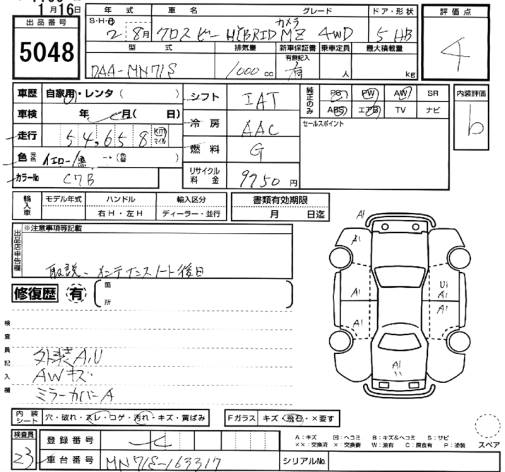 1月16日
出品番号
5048
年式 車名 グレード ドア・形状
S・H・R
2年 8月 クロスビー HYBRID MZ 4WD 5 HB
カメラ
評価点
4
型式 排気量 新車保証書 乗車定員 最大積載量
有無記入
DAA-MN71S 1000cc 有 人 kg
車歴 自家用・レンタ( )
車検 年 月( 日)
走行 54,658 Km マイル
色 イエロー/黒
カラーNo C7B
シフト IAT
冷房 AAC
燃料 G
リサイクル料金 9750円
純正のみ
PS PW AW SR
ABS エアB TV ナビ
セールスポイント
内装評価
b
輸入車 モデル年式 ハンドル 輸入区分
右H・左H ディーラー・並行
書類有効期限
月 日迄
出品店申告欄
※注意事項等記載
取説、メンテナンスノート後日
修復歴 有 箇所
検査員記入欄
外装A,U
AWキズ
ミラーカバーA
A1
A1
A1
U1
A1
A1
A1
内装シート 穴・破れ・スレ・コゲ・汚れ・キズ・黄ばみ
Fガラス キズ・飛石・×要す
A:キズ 凹:ヘコミ B:キズ&ヘコミ S:サビ
××:交換済 ×:交換要 W:波有 C:腐食有 P:塗装
スペア
検査員
23
登録番号
車台番号 MN71S-163317
シリアルNo